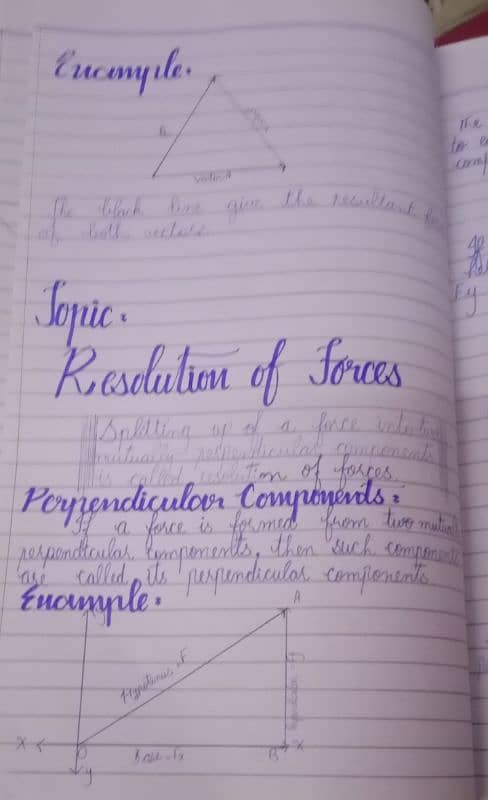 Example.
R
vector
The black line give the resultant
of both vectors
Topic.
Resolution of Forces
Splitting up of a force into two
mutually perpendicular components
is called resolution of forces.
Perpendicular Components:
If a force is formed from two mutual
perpendicular components, then such components
are called its perpendicular components
Example.
A
Hypotenuse F
X
O
Base Fx
B
X
y
The
to
comp
Fy